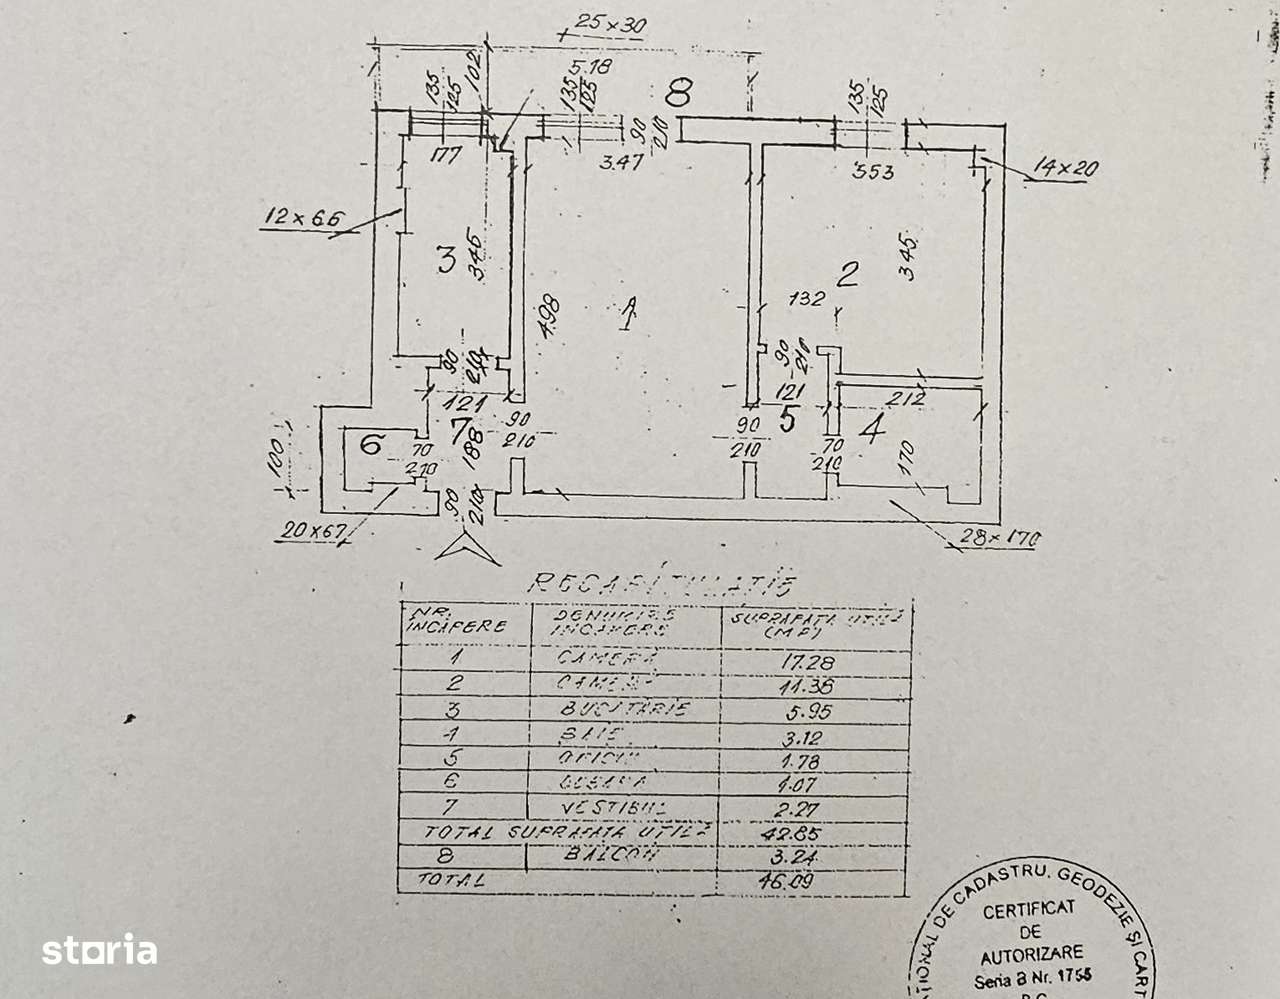 25×30
5.18
102
135
125
135
125
8
90
210
135
125
177
3.47
353
14×20
12×66
3
345
498
1
2
345
132
90
210
90
210
121
121
212
7
188
90
210
90
210
5
4
70
210
170
6
70
210
100
90
210
20×67
28×170
RECAPITULATIE
NR. ÎNCĂPERE DENUMIRE ÎNCĂPERE SUPRAFAȚA UTILĂ (MP)
1 CAMERĂ 17.28
2 CAMERĂ 11.38
3 BUCĂTĂRIE 5.95
4 BAIE 3.12
5 OFICIU 1.78
6 1.07
7 VESTIBUL 2.27
TOTAL SUPRAFAȚA UTILĂ 42.85
8 BALCON 3.24
TOTAL 46.09
DE CADASTRU, GEODEZIE ȘI CART
CERTIFICAT
DE
AUTORIZARE
Seria B Nr. 1755
storia